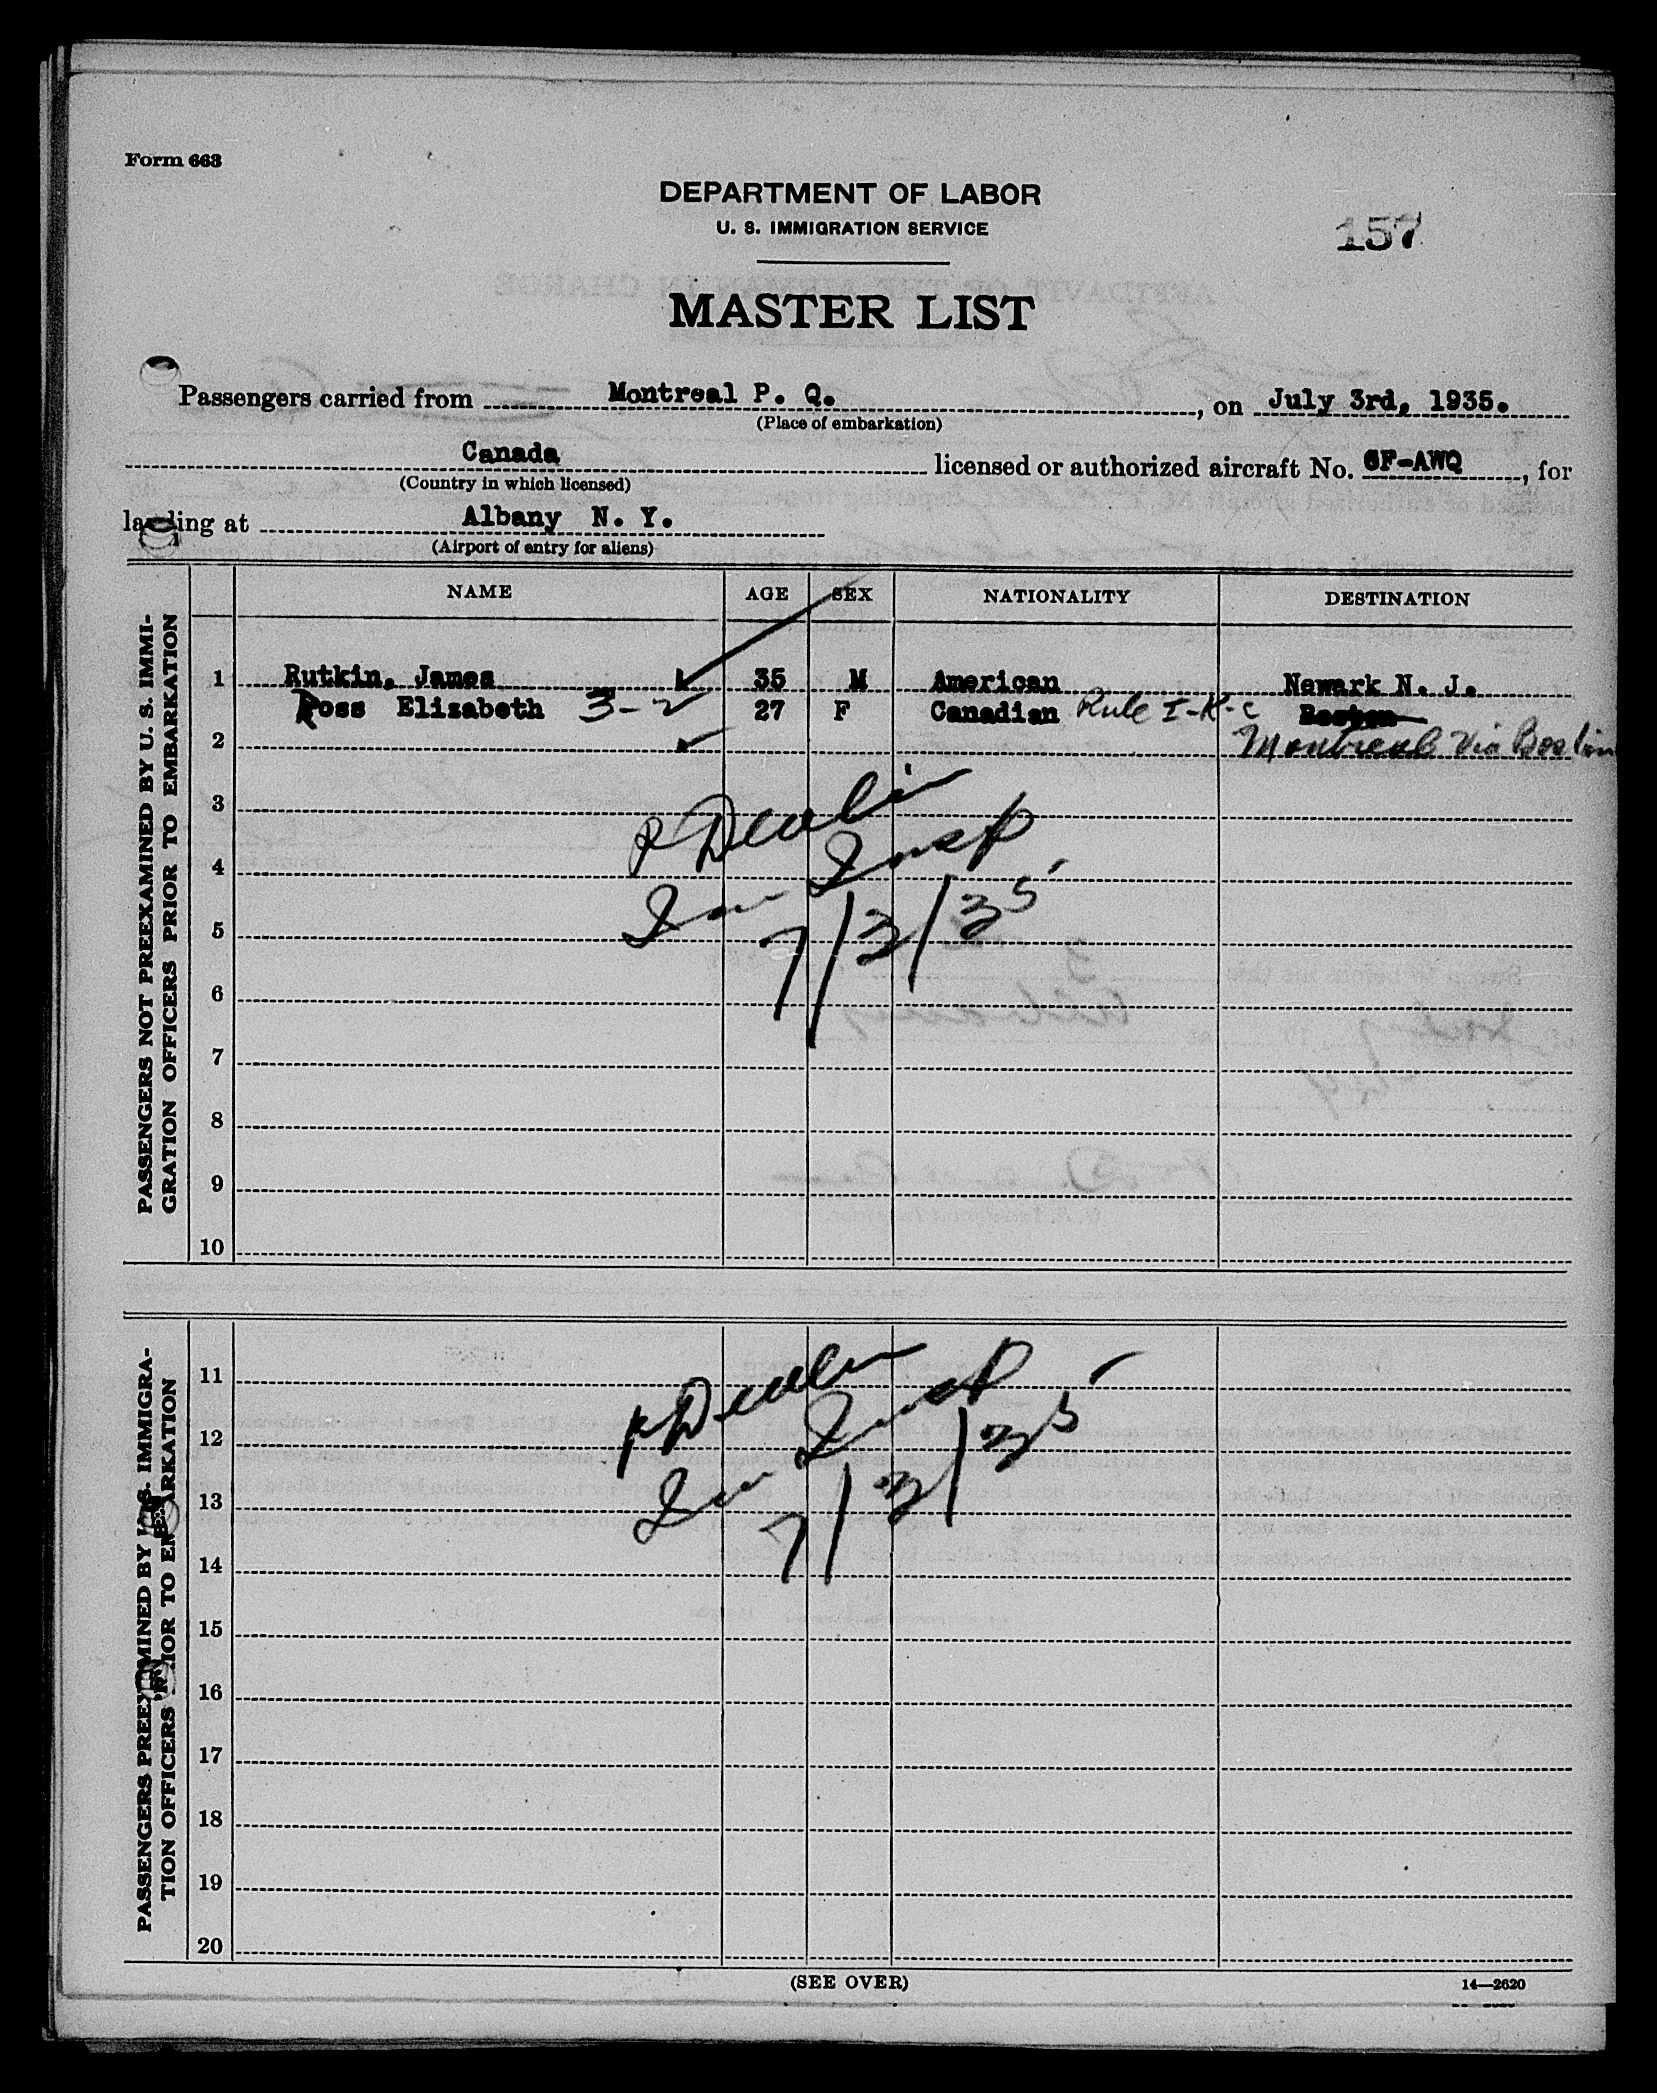 Form 663
DEPARTMENT OF LABOR
U. S. IMMIGRATION SERVICE
157
MASTER LIST
Passengers carried from Montreal P. Q., on July 3rd, 1935.
(Place of embarkation)
Canada licensed or authorized aircraft No. CF-AWQ, for
(Country in which licensed)
landing at Albany N. Y.
(Airport of entry for aliens)
NAME AGE SEX NATIONALITY DESTINATION
PASSENGERS NOT PREEXAMINED BY U. S. IMMI-
GRATION OFFICERS PRIOR TO EMBARKATION
1 Rutkin, James 35 M American Newark N. J.
Ross Elizabeth 3-2 27 F Canadian Rule I-K-c Boston
2 Montreal Via Boston
3
4
5
6
7
8
9
10
P Devlin
Im Insp
7/3/35
PASSENGERS PREEXAMINED BY U. S. IMMIGRA-
TION OFFICERS PRIOR TO EMBARKATION
11
12
13
14
15
16
17
18
19
20
P Devlin
Im Insp
7/3/35
(SEE OVER)
14—2620